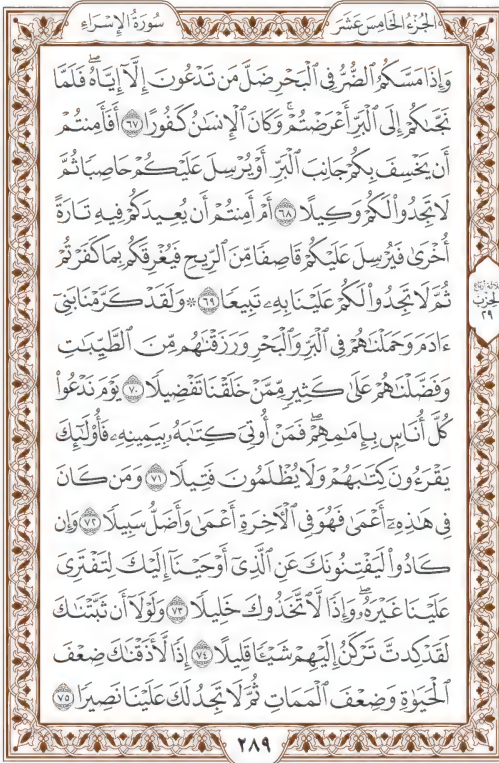 الجُزْءُ الخَامِسَ عَشَرَ
سُورَةُ الإِسْرَاءِ
وَإِذَا مَسَّكُمُ ٱلضُّرُّ فِي ٱلْبَحْرِ ضَلَّ مَن تَدْعُونَ إِلَّآ إِيَّاهُۖ فَلَمَّا
نَجَّىٰكُمْ إِلَى ٱلْبَرِّ أَعْرَضْتُمْۚ وَكَانَ ٱلْإِنسَٰنُ كَفُورًا ٦٧ أَفَأَمِنتُمْ
أَن يَخْسِفَ بِكُمْ جَانِبَ ٱلْبَرِّ أَوْ يُرْسِلَ عَلَيْكُمْ حَاصِبًا ثُمَّ
لَا تَجِدُوا۟ لَكُمْ وَكِيلًا ٦٨ أَمْ أَمِنتُمْ أَن يُعِيدَكُمْ فِيهِ تَارَةً
أُخْرَىٰ فَيُرْسِلَ عَلَيْكُمْ قَاصِفًا مِّنَ ٱلرِّيحِ فَيُغْرِقَكُم بِمَا كَفَرْتُمْ
ثُمَّ لَا تَجِدُوا۟ لَكُمْ عَلَيْنَا بِهِۦ تَبِيعًا ٦٩ ۞ وَلَقَدْ كَرَّمْنَا بَنِىٓ
ءَادَمَ وَحَمَلْنَٰهُمْ فِي ٱلْبَرِّ وَٱلْبَحْرِ وَرَزَقْنَٰهُم مِّنَ ٱلطَّيِّبَٰتِ
وَفَضَّلْنَٰهُمْ عَلَىٰ كَثِيرٍ مِّمَّنْ خَلَقْنَا تَفْضِيلًا ٧٠ يَوْمَ نَدْعُوا۟
كُلَّ أُنَاسٍۭ بِإِمَٰمِهِمْۖ فَمَنْ أُوتِيَ كِتَٰبَهُۥ بِيَمِينِهِۦ فَأُو۟لَٰٓئِكَ
يَقْرَءُونَ كِتَٰبَهُمْ وَلَا يُظْلَمُونَ فَتِيلًا ٧١ وَمَن كَانَ
فِي هَٰذِهِۦٓ أَعْمَىٰ فَهُوَ فِي ٱلْءَاخِرَةِ أَعْمَىٰ وَأَضَلُّ سَبِيلًا ٧٢ وَإِن
كَادُوا۟ لَيَفْتِنُونَكَ عَنِ ٱلَّذِىٓ أَوْحَيْنَآ إِلَيْكَ لِتَفْتَرِيَ
عَلَيْنَا غَيْرَهُۥۖ وَإِذًا لَّٱتَّخَذُوكَ خَلِيلًا ٧٣ وَلَوْلَآ أَن ثَبَّتْنَٰكَ
لَقَدْ كِدتَّ تَرْكَنُ إِلَيْهِمْ شَيْـًٔا قَلِيلًا ٧٤ إِذًا لَّأَذَقْنَٰكَ ضِعْفَ
ٱلْحَيَوٰةِ وَضِعْفَ ٱلْمَمَاتِ ثُمَّ لَا تَجِدُ لَكَ عَلَيْنَا نَصِيرًا ٧٥
الحِزْب
٢٩
٢٨٩